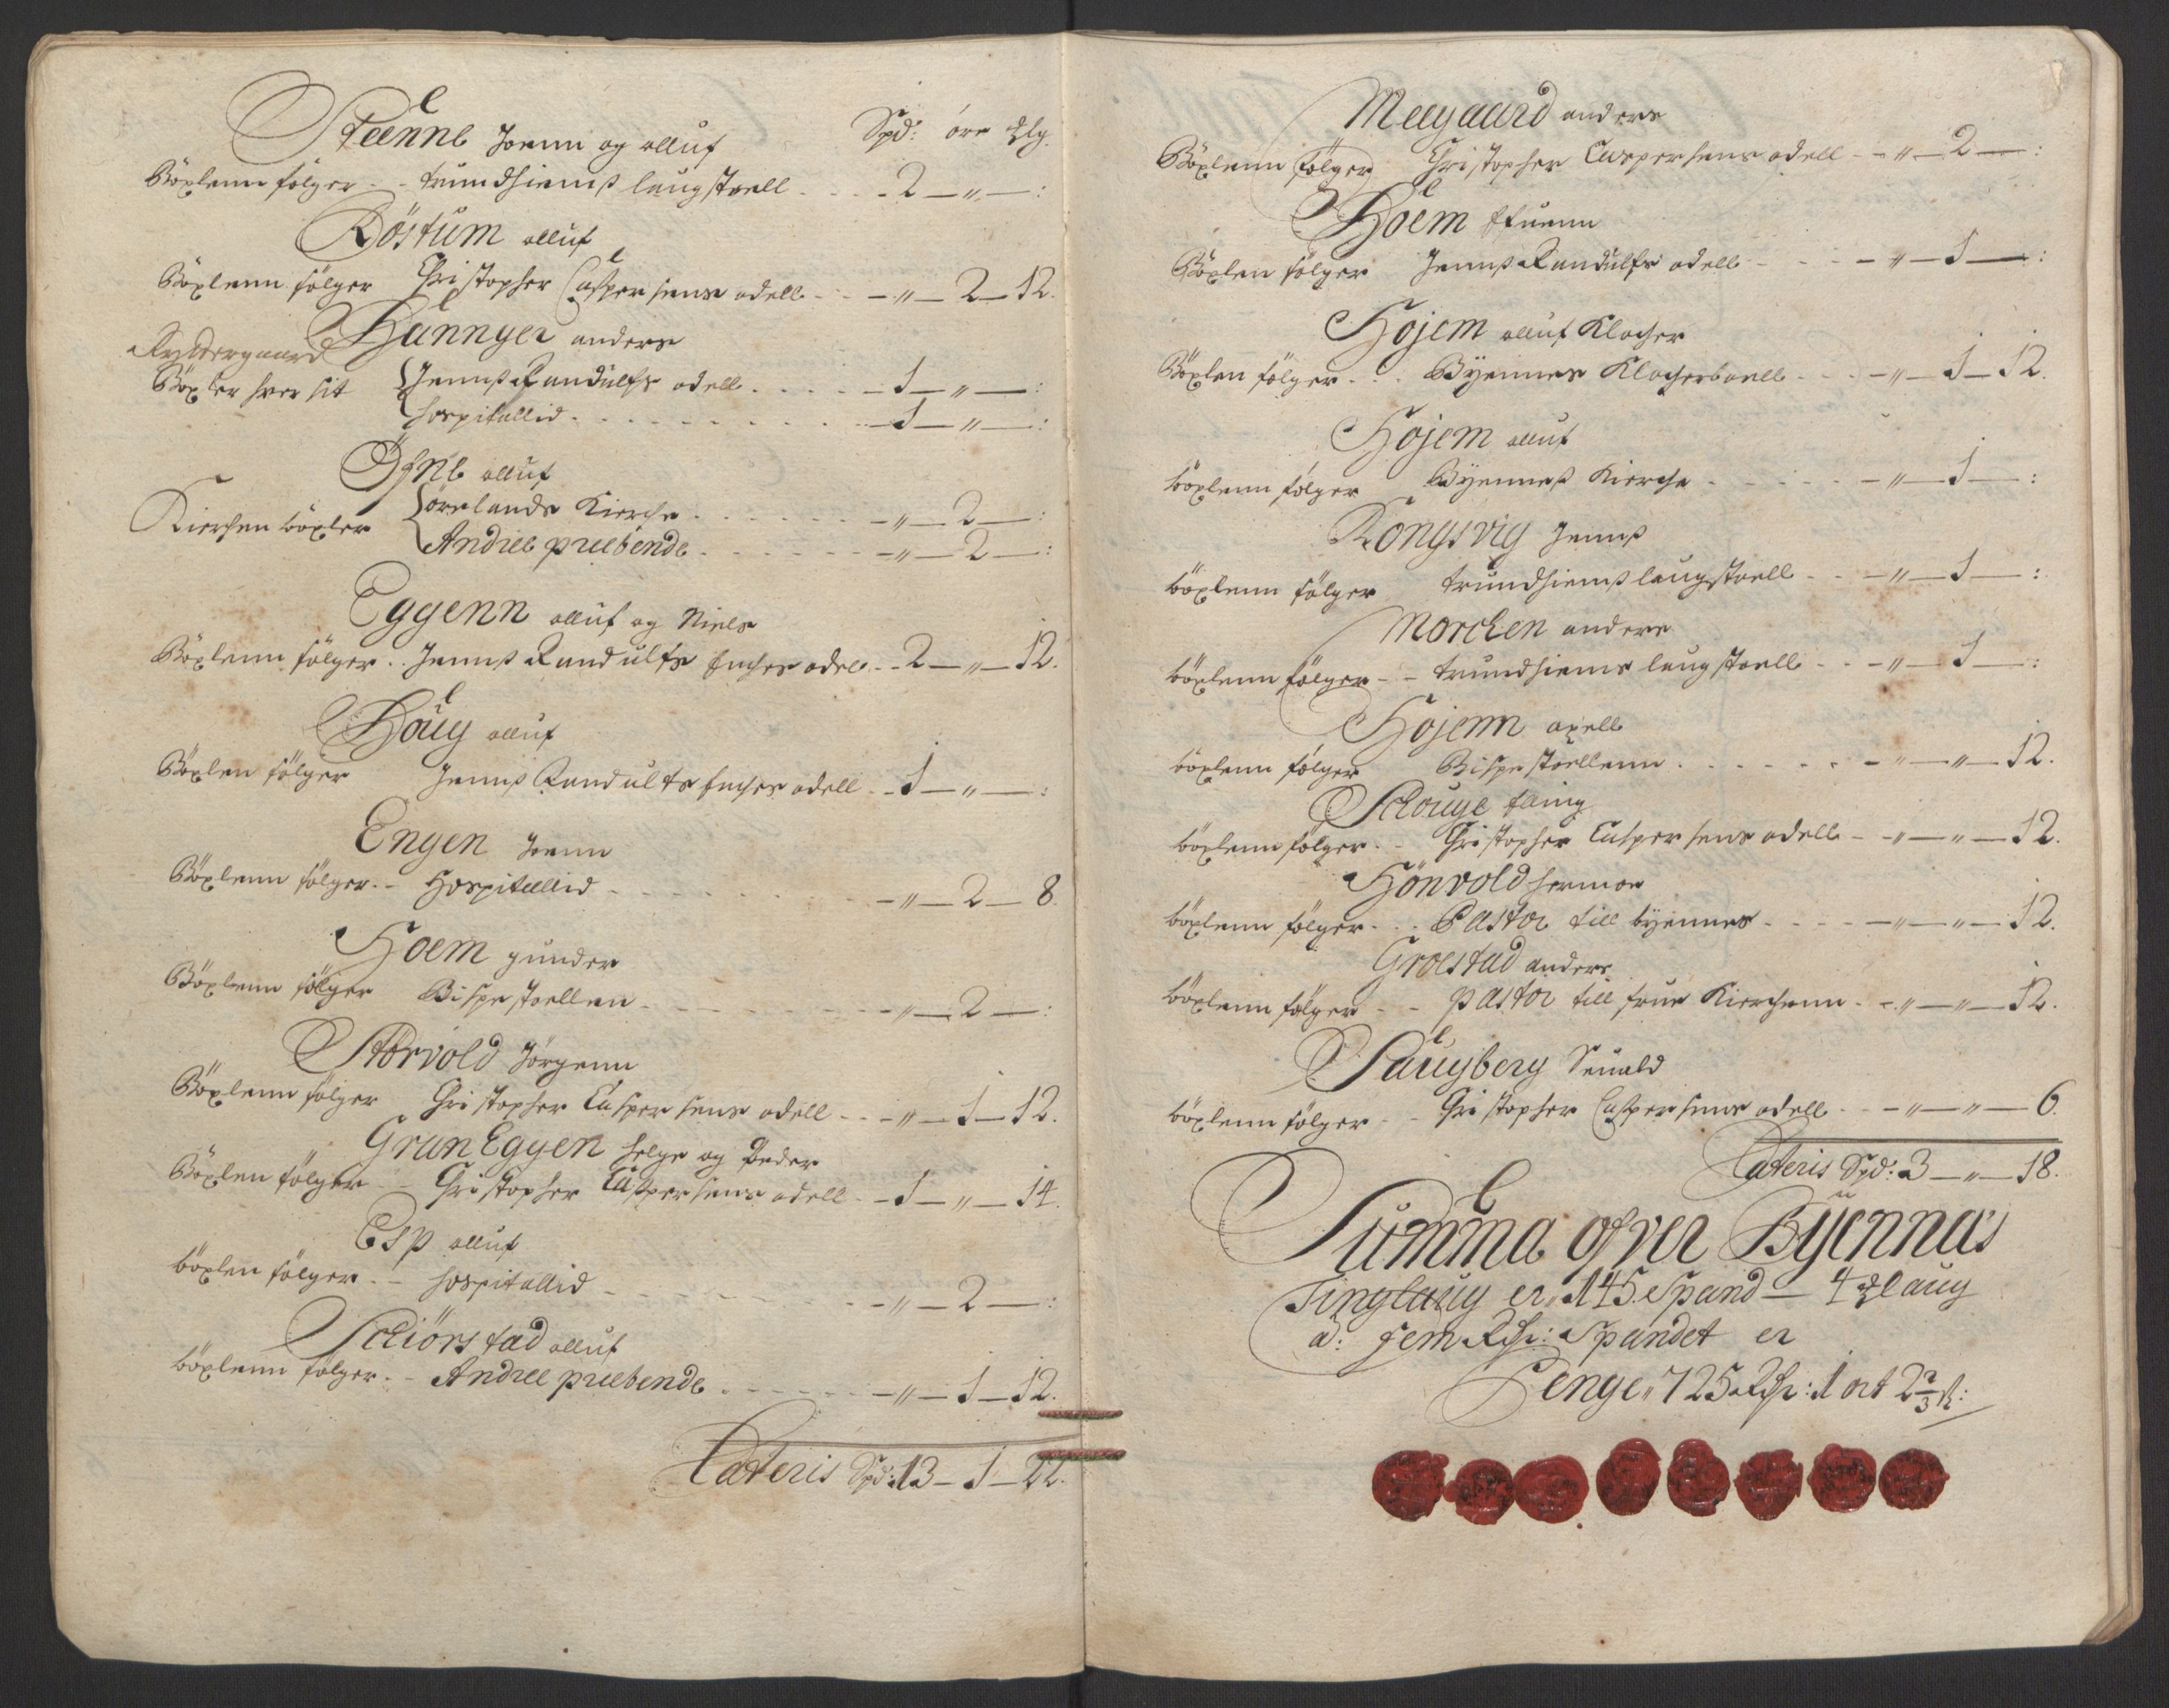 Steenne Joenn og olluf Spd: öre ℔lg.
Böxlenn følger - - trundhiembß laugstoell - - - - 2 — „ — :
Röstum olluf
Böxlenn følger Christopher Caspersens odell - - - „ — 2 — 12.
Hannger anders
Ryttergaard
Böxler hver sit Jennß Randulfs odell - - - - 1 — „ — :
hospitallid - - - - - - - - 1 — „ — :
Öfne olluf
Kierchen böxler ørelands Kierche - - - - - - - „ — 2 — :
Andree præbende - - - - - - „ — 2 — :
Eggenn olluf og Niels
Böxlenn følger - - Jennß Randulfs Enches odel - - 2 — „ — 12.
Houg olluf
Böxlen følger Jennß Randulfs Enches odell - - 1 — „ — :
Engen Joenn
Böxlenn følger - - Hospitallid - - - - - - „ — 2 — 8.
Hoem gunder
Böxlenn følger Bispestoellen - - - - - - „ — 2 — :
Storvold Jörgenn
Böxlenn følger Christopher Caspersens odell - - - „ — 1 — 12.
GranEggen helge og Peder
Böxlen følger - - Christopher Caspersens odell - - 1 — „ — 14.
Esp olluf
böxlen følger - - hospitallid - - - - - - - „ — 2 — :
Schiörstad olluf
böxlenn følger - - Andree præbende - - - - - „ — 1 — 12.
Lateris Spd: 13 — 1 — 22.
Meegaard anders
Böxlenn følger Christopher Caspersens odell - - „ — 2 — :
Hoem Efuenn
Böxlen følger Jennß Randulfs odell - - - - „ — 1 — :
Hojem olluf Klocher
Böxlen følger - - Byennes Klocherboell - - - „ — 1 — 12.
Hojem olluf
böxlenn følger Byenneß Kierche - - - - - „ — 1 — :
Kongsvig Jennß
böxlenn følger trundhiembß laugstoell - - - „ — 1 — :
Morchen anders
böxlenn følger - - trundhiems laugstoell - - - „ — 1 — :
Hojenn axell
böxlenn følger Bispestoellenn - - - - - - „ — „ — 12.
Schouge
böxlenn følger - - Christopher Caspersens odell - - „ — „ — 12.
Hönvold hermoe
böxlenn følger - - Pastor till byennes - - - - „ — „ — 12.
Groestad anders
böxlenn følger - - pastor till frue Kierchenn - - „ — „ — 12.
Saugberg Seuald
böxlenn følger - - Christopher Caspersens odell - - - „ — „ — 6.
Lateris Spd: 3 — „ — 18.
Summa ofver Byennæs
Tinglaug er „ 145. Spand — 4 ℔laug
a: fem Rdr: Spandet er
Penge „ 725 Rdr: 1 ort 2 2/3 ß: